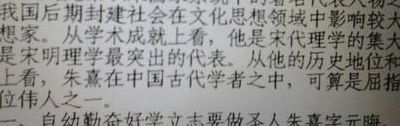 我国后期封建社会在文化思想领域中影响较大
想家。从学术成就上看，他是宋代理学的集大
是宋明理学最突出的代表。从他的历史地位和
上看，朱熹在中国古代学者之中，可算是屈指
位伟人之一。
一、自幼勤奋好学立志要做圣人朱熹字元晦